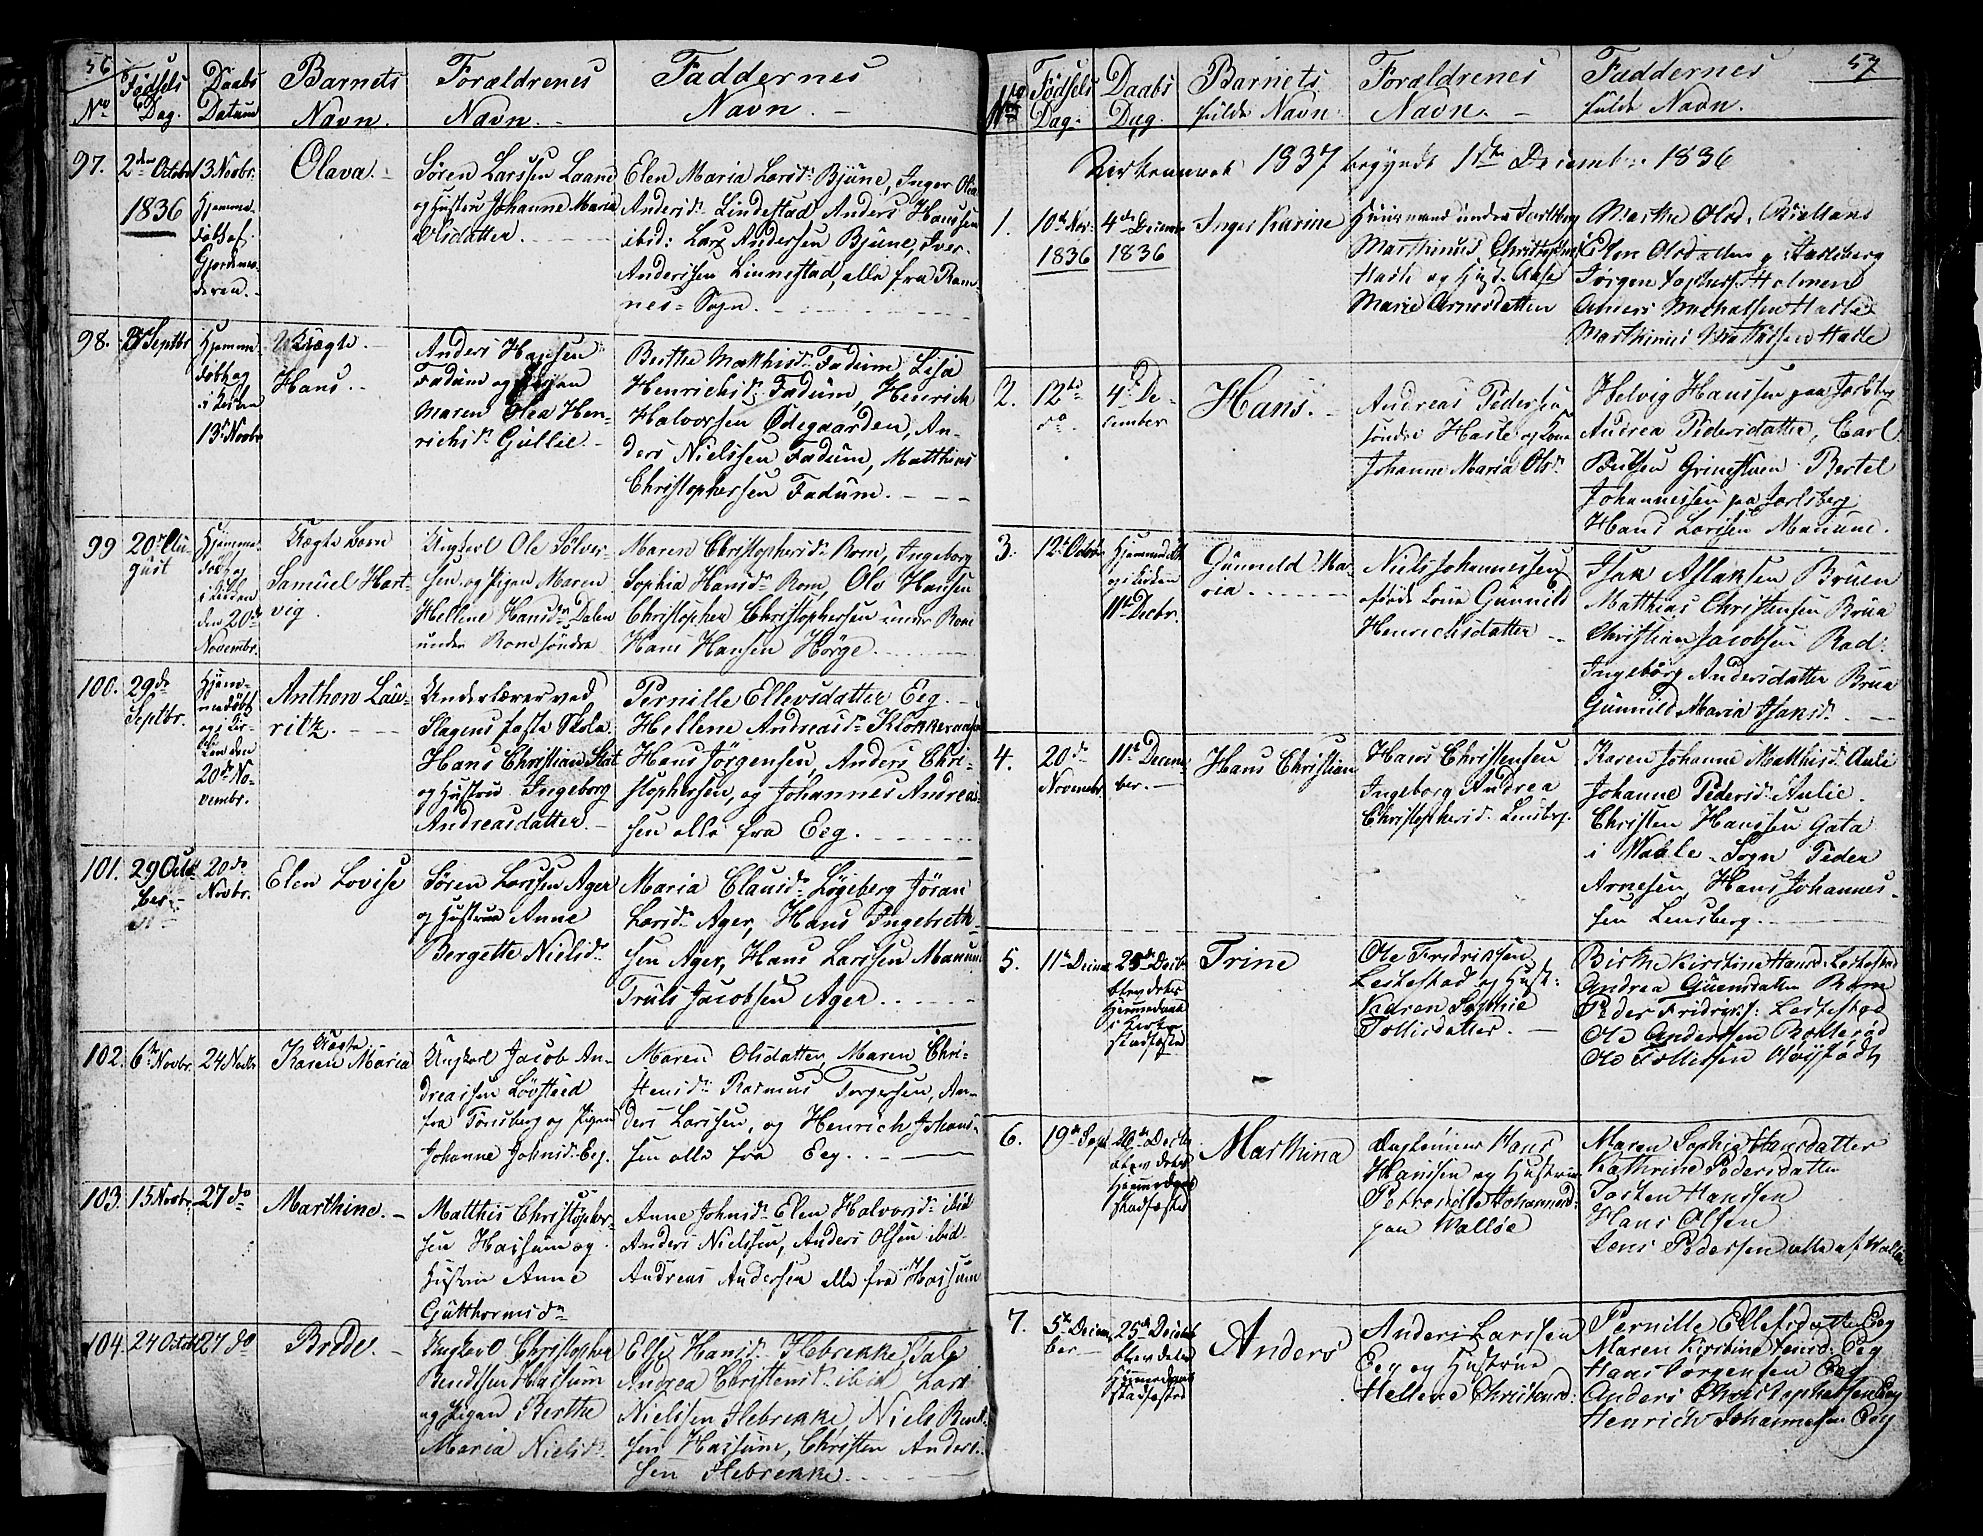 56
No
Fødsels
Dag.
Daabs
Datum
Barnets
Navn.
Forældrenes
Navn. -
Faddernes
Navn. -
97.
2den Octobr
1836
13 Novbr.
Hjemme-
døbt af
Gjordemo-
deren.
Olava. -
Søren Larssen Laane
og Hustru Johanne Maria
Olsdatter.
Elen Maria Larsd. Bjune, Inger Olea
Andersd. Lindestad Anders Hanssen
ibid: Lars Andersen Bjune, Iver
Anderssen Linnestad, alle fra Ram-
nes Sogn.
98.
Septbr
Hjemme
døbt og
i Kirken
13 Novbr
Uægte
Hans. -
Anders Hansen
Fadum og Pigen
Maren Olea Hen-
richsd. Gullie
Berthe Mathisd. Fadum, Lisa
Henrichsd. Fadum, Henrich
Halvorsen Ødegaarden, An-
ders Nielssen Fadum, Matthias
Christophersen Fadum. -
99
20 Au-
gust
Hjemme-
døbt og
i Kirken
den 20de
Novembr.
Uægte Barn
Samuel Hart-
vig.
Ungkarl Ole Sølver-
sen og Pigen Maren
Hellene Hansd. Dalen
under Rom søndre
Maren Christophersd. Rom, Ingeborg
Sophia Hansd. Rom, Ole Hansen
Christopher Christophersen under Rom
Hans Hansen Hørge.
100.
29de
Septbr.
Hjem-
medøbt
og i Kir-
ken den
20de No-
vembr.
Anthon Lau-
ritz. -
Underlærer ved
Slagens faste Skole
Hans Christian
og Hustru Ingeborg
Andreasdatter. -
Pernille Ellevsdatter Eeg.
Hellene Andreasd. Klokkeraasen
Hans Jørgensen, Anders Chri-
stophersen, og Johannes Andrea-
sen alle fra Eeg.
101.
29 Octo-
ber
20de
Novbr.
Elen Lovise
Søren Larssen Ager
og Hustru Anne
Bergette Nielsd.
Maria Clausd. Løgeberg Jøran
Larsd. Ager, Hans Ingebreth-
sen Ager, Hans Larssen Manum
Truls Jacobsen Ager.
102.
6te Novbr.
24 Novbr
Uægte
Karen Maria
Ungkarl Jacob An-
dreassen Løvslied
fra Tønsberg og Pigen
Johanne Johnsd. Eeg.
Maren Olsdatter, Maren Chri-
stensd. Rasmus Torgersen, An-
ders Larssen, og Henrich Johans-
sen alle fra Eeg.
103.
15 Novbr.
27 do
Marthine. -
Matthis Christopher-
sen Hassum og
Hustru Anne
Gutthormsd.
Anne Johnsd. Elen Halvorsd. ibid
Anders Nielssen, Anders Olsen ibid.
Andreas Andersen alle fra Hassum
104.
24 Octob
27 do
Brede. -
Ungkarl Christopher
Bendssen Hassum
og Pigen Berthe
Maria Nielsd.
Else Hansd. Hebrekke, Tale
Andrea Christensd. ibid Lars
Nielssen Hebrekke Niels Bend-
sen Hassum, Christen Anders-
sen Hebrekke.
57
No
Fødsels
Dag.
Daabs
Dag.
Barnets
fulde Navn.
Forældrenes
Navn. -
Faddernes
fulde Navn.
Kirkeaaret 1837 begyndt 1ste December 1836
1.
10de Nov.
1836
4de Decem
1836
Inger Karine
Huusmand under Jarlsberg
Marthinus Christophers
Hasle og Hust. Aase
Marie Arnesdatter
Marthe Olsd.
Ellen Olsdatter Jarlsberg
Jørgen Holmen
Anders Mathissen Hasle
Marthinus Hasle
2.
12te
do.
4de De-
cember
Hans. -
Andreas Pedersen
søndre Hasle og Kone
Johanne Maria Olsd.
Helvig Hanssen paa Jarlsberg
Andrea Pedersdatter, Carl
Grimestuen Bertel
Johannessen paa Jarlsberg
Hans Larssen Manum.
3.
12te Octobr
Hjemmedøbt
og i Kirken
11te Decbr.
Gunneld Ma-
ria.
Niels Johannessen
afdøde Kone Gunnild
Henrichsdatter -
Isak Aslaksen Bruen
Matthias Christensen Brua
Christian Jacobsen Rad:
Ingeborg Andersdatter Brua
Gunnild Maria Isaksd.
4.
20de
Novembr
11te Decem-
ber. -
Hans Christian
Hans Christensen
Ingeborg Andrea
Christophersd. Lensberg.
Karen Johanne Mathisd. Auli
Johanne Pedersd. Aulie.
Christen Hanssen Gata
i Vaale Sogn Peder
Arnesen, Hans Johannes-
sen Lensberg.
5.
11te Decem
25de Decbr
blev dets
Hjemmedaab
i Kirken
stadfæstet
Trine
Ole Fredriksen
Lestestad og Hust:
Karen Sophie
Tollisdatter. -
Birthe Kirstine Hansd. Lestestad
Andrea Guensdatter Rom
Peder Fridriks: Lestestad
Ole Anderssen
Ole Tollissen
6.
19de Sept
26de Decbr
blev dets
Hjemmedaab
stadfæstet
Marthina
Hans
Hanssen og Hustrue
Petronelle Johannesd:
paa Walløe
Maren Sophie Hansdatter
Kathrine Pedersdatter
Hanssen
Hans Olsen
Jens Pedersen alle af Walløe
7.
5te Decem
ber
25de Decbr
blev dets
Hjemmedaab
stadfæstet
Anders
Anders Larssen
Eeg og Hustrue
Hellene Christensd:
Pernille Ellefsdatter Eeg
Maren Kirstine Jensd. Eeg
Hans Jørgensen Eeg
Anders Christophersen Eeg
Henrich Johannessen Eeg